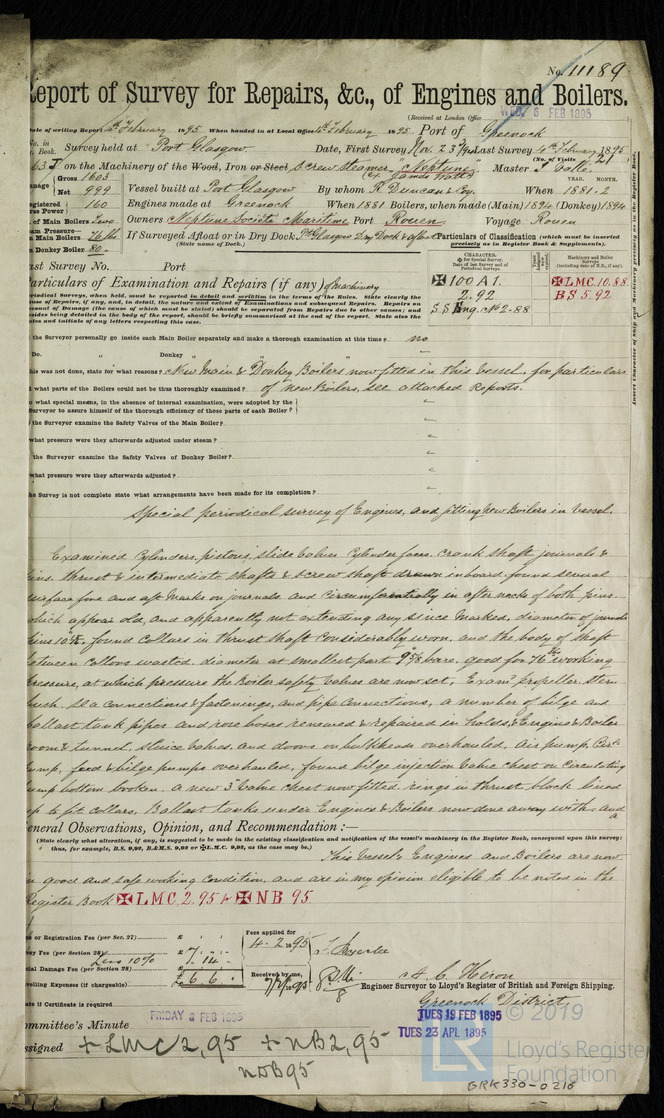 No. 11189
Report of Survey for Repairs, &c., of Engines and Boilers.
(Received at London Office WED. 6 FEB 1895
Date of writing Report 4th February 1895 When handed in at Local Office 5th February 1895 Port of Greenock
No. in Book. Survey held at Port Glasgow Date, First Survey Nov. 23rd/94 Last Survey 4th February 1895
(No. of Visits 21)
on the Machinery of the Wood, Iron or Steel Screw Steamer "Neptune" Master
Gross 1603
Net 999
Vessel built at Port Glasgow By whom R Duncan & Co. When 1881.2
YEAR. MONTH.
Registered Horse Power 160 Engines made at Greenock When 1881 Boilers, when made (Main) 1894 (Donkey) 1894
No. of Main Boilers Two Owners Neptune Societa Maritime Port Rouen Voyage Rouen
Steam Pressure— in Main Boilers 76 lbs If Surveyed Afloat or in Dry Dock. Pt Glasgow Dry Dock & afloat
(State name of Dock.)
in Donkey Boiler 80
Particulars of Classification (which must be inserted precisely as in Register Book & Supplements).
CHARACTER.
for Special Survey.
Date of last Survey and of Periodical Surveys.
Machinery and Boiler Surveys (including date of N.B., if any).
✠ 100 A1. ✠ LMC. 10.88.
2.92 BS 5.92
SS Eng. No 2-88
Insert Character of Ship and Machinery precisely as in the Register Book.
Last Survey No. Port
Particulars of Examination and Repairs (if any) of machinery
Periodical Surveys, when held, must be reported in detail and seriatim in the terms of the Rules. State clearly the
cause of Repairs, if any, and, in detail, the nature and extent of Examinations and subsequent Repairs. Repairs on
account of Damage (the cause of which must be stated) should be separated from Repairs due to other causes; and
besides being detailed in the body of the report, should be briefly summarised at the end of the report. State also the
dates and initials of any letters respecting this case.
Did the Surveyor personally go inside each Main Boiler separately and make a thorough examination at this time? no
Do. " Donkey " " " —
If this was not done, state for what reasons? New Main & Donkey Boilers now fitted in this vessel, for particulars
what parts of the Boilers could not be thus thoroughly examined? of new Boilers, see attached Reports.
what special means, in the absence of internal examination, were adopted by the
Surveyor to assure himself of the thorough efficiency of those parts of each Boiler? —
Did the Surveyor examine the Safety Valves of the Main Boiler? —
what pressure were they afterwards adjusted under steam? —
Did the Surveyor examine the Safety Valves of Donkey Boiler? —
what pressure were they afterwards adjusted? —
If the Survey is not complete state what arrangements have been made for its completion? —
Special periodical survey of Engines, and fitting new Boilers in vessel.
Examined cylinders, pistons, slide valves cylinder faces. crank shaft journals &
pins. thrust & intermediate shafts & screw shaft drawn inboard, found several
surface fore and aft marks on journals and circumferentially in after necks of both pins
which appear old, and apparently not extending any since marked, diameter of journals
pins 10 found collars in thrust shaft considerably worn, and the body of shaft
between collars wasted diameter at smallest part 9 7/8 bare. good for 76 lbs working
pressure, at which pressure the Boiler safety valves are now set, Exam'd propeller stern
bush. sea connections & fastenings, and pipe connections, a number of bilge and
ballast tank pipes and rose boxes renewed & repaired in holds, Engine & Boiler
room & tunnel, sluice valves, and doors on bulkheads overhauled, air pump, circ
pump, feed & bilge pumps overhauled, found bilge injection valve chest on circulating
pump bottom broken. a new 3" valve chest now fitted, rings in thrust block lined
up to fit collars, Ballast tanks under Engines & Boilers now done away with. and
General Observations, Opinion, and Recommendation:—
(State clearly what alteration, if any, is suggested to be made in the existing classification and notification of the vessel's machinery in the Register Book, consequent upon this survey;
thus, for example, B.S. 9,92, B.&M.S. 9,92 or ✠ L.M.C. 9,92, as the case may be.)
This vessel's Engines and Boilers are now
in good and safe working condition, and are in my opinion eligible to be noted in the
Register Book ✠ LMC. 2.95 & ✠ NB 95.
or Registration Fee (per Sec. 27) £ : :
Survey Fee (per Section 28) £ 7 : :
less 10% 14
Special Damage Fee (per Section 28) £6 6 .
Travelling Expenses (if chargeable) £
Fees applied for
4.2.1895
Received by me,
A. C. Heron
Engineer Surveyor to Lloyd's Register of British and Foreign Shipping.
Greenock District.
State if Certificate is required
Committee's Minute FRIDAY 8 FEB 1895
TUES 19 FEB 1895
TUES 23 APL 1895
Assigned + LMC 2,95 + NB 2,95
NDB 95
© 2019
LR
Lloyd's Register
Foundation
GRK330-0216